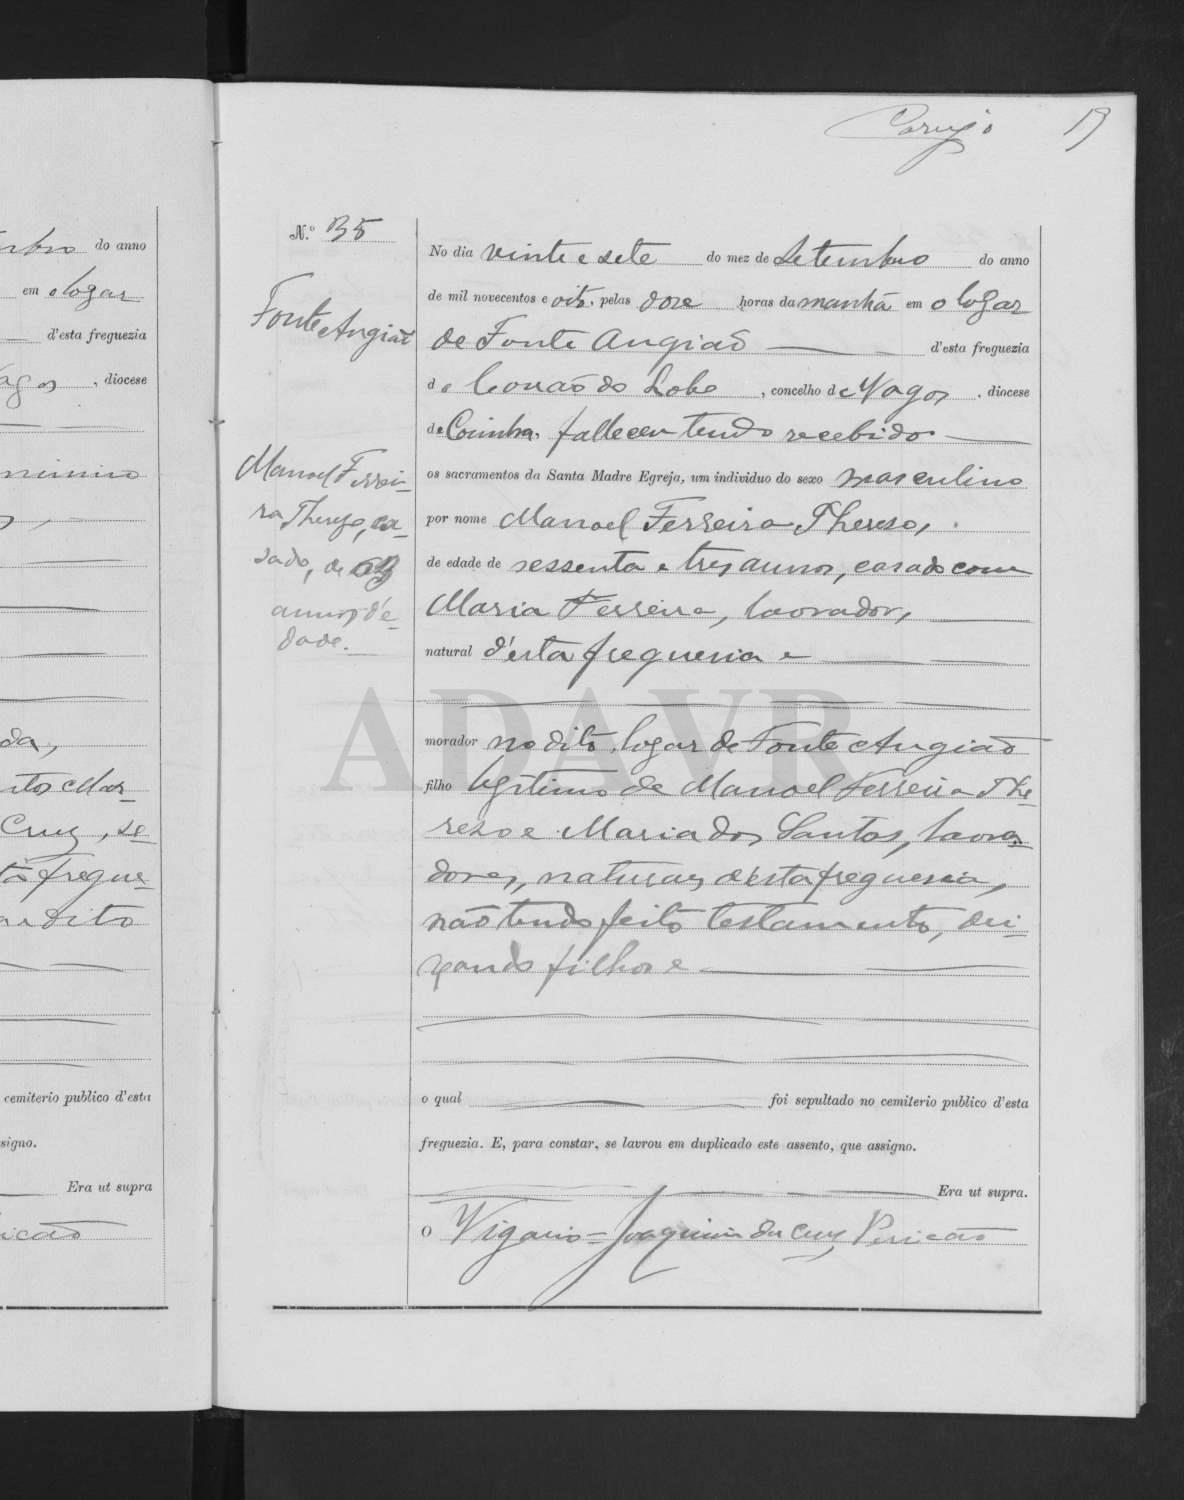 Carujo 19
rbro do anno
em o logar
d'esta freguezia
agos, diocese
minino
da,
itos Mar-
Cruz, se-
ta fregue-
n dito
cemiterio publico d'esta
signo.
Era ut supra
icão
N.º 35
Fonte Angião
Manoel Ferrei-
ra Therezo, ca-
sado, de 63
annos d'e-
dade.
No dia vinte e sete do mez de Setembro do anno
de mil novecentos e oito, pelas doze horas da manhã em o logar
de Fonte Angião d'esta freguezia
de Covão do Lobo, concelho de Vagos, diocese
de Coimbra, falleceu tendo recebido
os sacramentos da Santa Madre Egreja, um individuo do sexo masculino
por nome Manoel Ferreira Therezo,
de edade de sessenta e tres annos, casado com
Maria Ferreira, lavrador,
natural d'esta freguesia e
ADAVR
morador no dito logar de Fonte Angião
filho legitimo de Manoel Ferreira The-
rezo e Maria dos Santos, lavra-
dores, naturaes d'esta freguesia,
não tendo feito testamento, dei-
xando filhos e
o qual foi sepultado no cemiterio publico d'esta
freguezia. E, para constar, se lavrou em duplicado este assento, que assigno.
Era ut supra.
O Vigario = Joaquim da Cruz Pericão